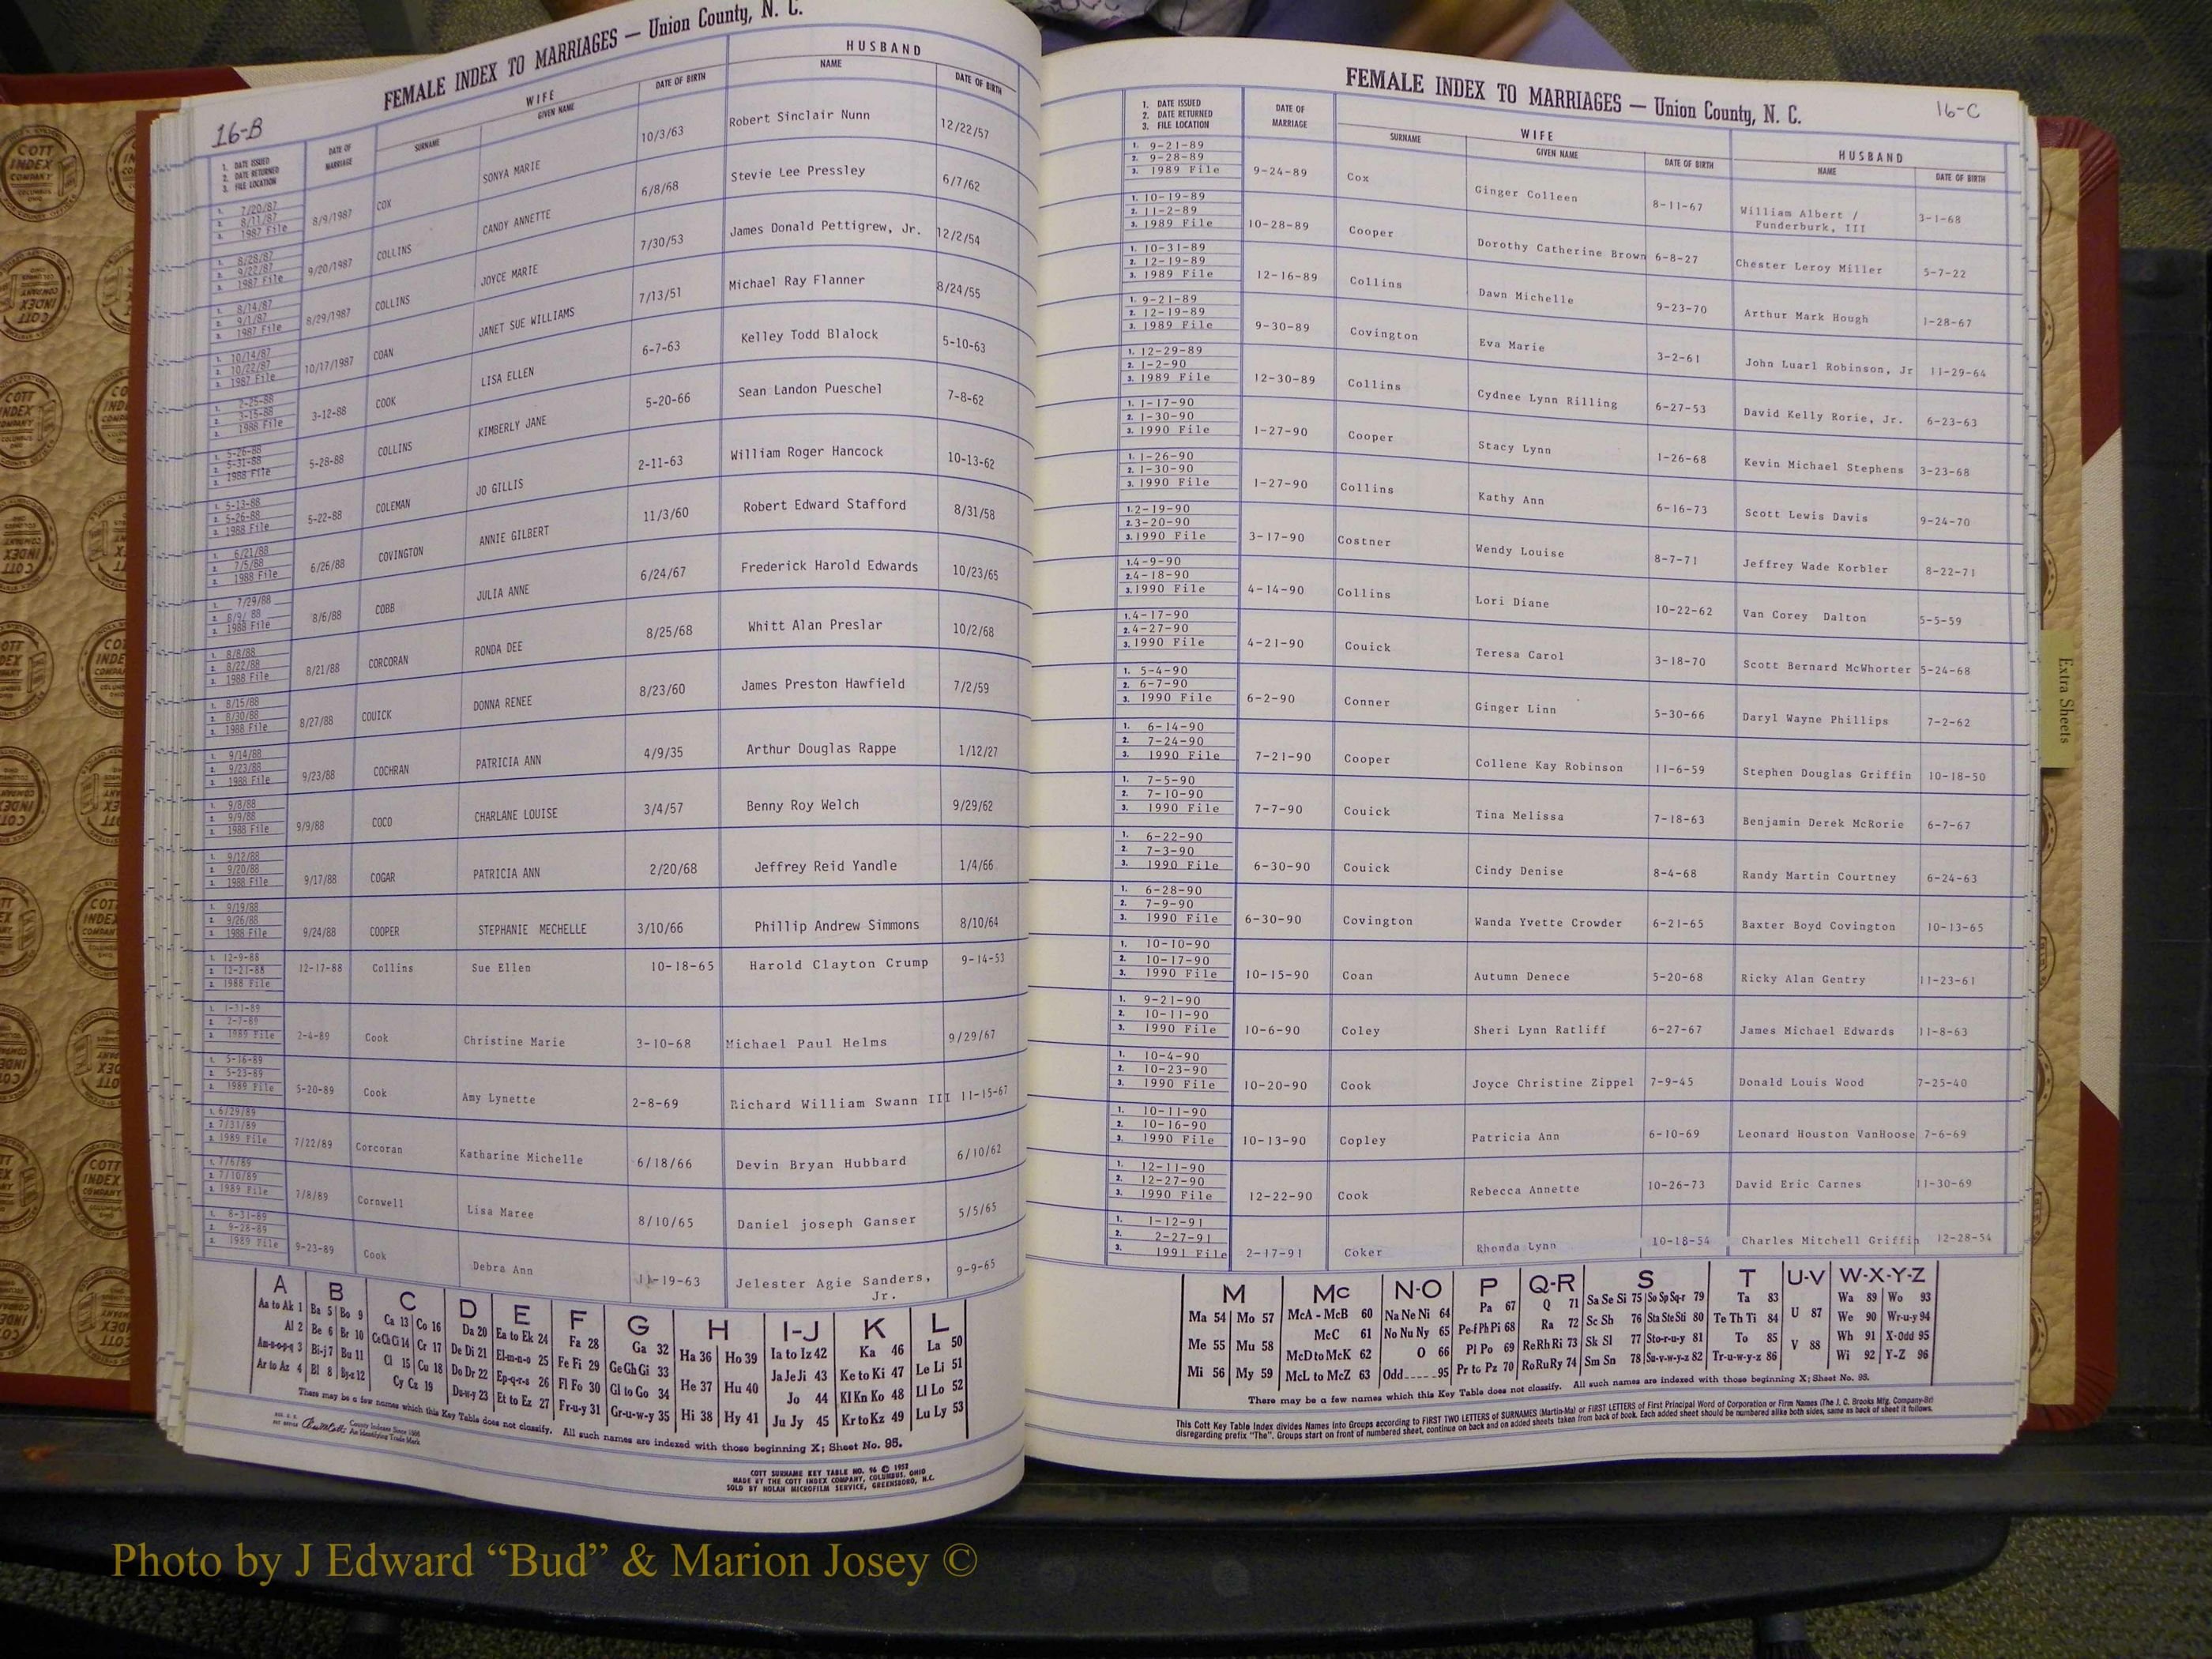 FEMALE INDEX TO MARRIAGES — Union County, N. C.
16-B
1. DATE ISSUED 2. DATE RETURNED 3. FILE LOCATION
DATE OF MARRIAGE
WIFE
SURNAME GIVEN NAME DATE OF BIRTH
HUSBAND
NAME DATE OF BIRTH
1. 7/20/87 2. 8/11/87 3. 1987 File 8/9/1987 COX SONYA MARIE 10/3/63 Robert Sinclair Nunn 12/22/57
1. 8/28/87 2. 9/22/87 3. 1987 File 9/20/1987 COLLINS CANDY ANNETTE 6/8/68 Stevie Lee Pressley 6/7/62
1. 8/14/87 2. 9/1/87 3. 1987 File 8/29/1987 COLLINS JOYCE MARIE 7/30/53 James Donald Pettigrew, Jr. 12/2/54
1. 10/14/87 2. 10/22/87 3. 1987 File 10/17/1987 COAN JANET SUE WILLIAMS 7/13/51 Michael Ray Flanner 8/24/55
1. 2-25-88 2. 3-15-88 3. 1988 File 3-12-88 COOK LISA ELLEN 6-7-63 Kelley Todd Blalock 5-10-63
1. 5-26-88 2. 5-31-88 3. 1988 File 5-28-88 COLLINS KIMBERLY JANE 5-20-66 Sean Landon Pueschel 7-8-62
1. 5-13-88 2. 5-26-88 3. 1988 File 5-22-88 COLEMAN JO GILLIS 2-11-63 William Roger Hancock 10-13-62
1. 6/21/88 2. 7/5/88 3. 1988 File 6/26/88 COVINGTON ANNIE GILBERT 11/3/60 Robert Edward Stafford 8/31/58
1. 7/29/88 2. 8/9/ 88 3. 1988 File 8/6/88 COBB JULIA ANNE 6/24/67 Frederick Harold Edwards 10/23/65
1. 8/8/88 2. 8/22/88 3. 1988 File 8/21/88 CORCORAN RONDA DEE 8/25/68 Whitt Alan Preslar 10/2/68
1. 8/15/88 2. 8/30/88 3. 1988 File 8/27/88 COUICK DONNA RENEE 8/23/60 James Preston Hawfield 7/2/59
1. 9/14/88 2. 9/23/88 3. 1988 File 9/23/88 COCHRAN PATRICIA ANN 4/9/35 Arthur Douglas Rappe 1/12/27
1. 9/8/88 2. 9/9/88 3. 1988 File 9/9/88 COCO CHARLANE LOUISE 3/4/57 Benny Roy Welch 9/29/62
1. 9/12/88 2. 9/20/88 3. 1988 File 9/17/88 COGAR PATRICIA ANN 2/20/68 Jeffrey Reid Yandle 1/4/66
1. 9/19/88 2. 9/26/88 3. 1988 File 9/24/88 COOPER STEPHANIE MECHELLE 3/10/66 Phillip Andrew Simmons 8/10/64
1. 12-9-88 2. 12-21-88 3. 1988 File 12-17-88 Collins Sue Ellen 10-18-65 Harold Clayton Crump 9-14-53
1. 1-31-89 2. 2-7-89 3. 1989 File 2-4-89 Cook Christine Marie 3-10-68 Michael Paul Helms 9/29/67
1. 5-16-89 2. 5-23-89 3. 1989 File 5-20-89 Cook Amy Lynette 2-8-69 Richard William Swann III 11-15-67
1. 6/29/89 2. 7/31/89 3. 1989 File 7/22/89 Corcoran Katharine Michelle 6/18/66 Devin Bryan Hubbard 6/10/62
1. 7/6/89 2. 7/10/89 3. 1989 File 7/8/89 Cornwell Lisa Maree 8/10/65 Daniel joseph Ganser 5/5/65
1. 8-31-89 2. 9-28-89 3. 1989 File 9-23-89 Cook Debra Ann 11-19-63 Jelester Agie Sanders, Jr. 9-9-65
A B C D E F G H I-J K L
Aa to Ak 1 Ba 5 Bo 9 Ca 13 Co 16 Da 20 Ea to Ek 24 Fa 28 Ga 32 Ha 36 Ho 39 Ia to Iz 42 Ka 46 La 50
Al 2 Be 6 Br 10 Ce Ch Ci 14 Cr 17 De Di 21 El-m-n-o 25 Fe Fi 29 Ge Gh Gi 33 He 37 Hu 40 Ja Je Ji 43 Ke to Ki 47 Le Li 51
Am-n-o-p-q 3 Bi-j 7 Bu 11 Cl 15 Cu 18 Do Dr 22 Ep-q-r-s 26 Fl Fo 30 Gl to Go 34 Hi 38 Hy 41 Jo 44 Kl Kn Ko 48 Ll Lo 52
Ar to Az 4 Bl 8 By-z 12 Cy Cz 19 Du-w-y 23 Et to Ez 27 Fr-u-y 31 Gr-u-w-y 35 Ju Jy 45 Kr to Kz 49 Lu Ly 53
There may be a few names which this Key Table does not classify. All such names are indexed with those beginning X; Sheet No. 95.
County Indexes Since 1888
An Identifying Trade Mark
COTT SURNAME KEY TABLE NO. 96 © 1957
MADE BY THE COTT INDEX COMPANY, COLUMBUS, OHIO
SOLD BY NOLAN MICROFILM SERVICE, GREENSBORO, N.C.
FEMALE INDEX TO MARRIAGES — Union County, N. C.
16-C
1. DATE ISSUED 2. DATE RETURNED 3. FILE LOCATION
DATE OF MARRIAGE
WIFE
SURNAME GIVEN NAME DATE OF BIRTH
HUSBAND
NAME DATE OF BIRTH
1. 9-21-89 2. 9-28-89 3. 1989 File 9-24-89 Cox Ginger Colleen 8-11-67 William Albert / Funderburk, III 3-1-68
1. 10-19-89 2. 11-2-89 3. 1989 File 10-28-89 Cooper Dorothy Catherine Brown 6-8-27 Chester Leroy Miller 5-7-22
1. 10-31-89 2. 12-19-89 3. 1989 File 12-16-89 Collins Dawn Michelle 9-23-70 Arthur Mark Hough 1-28-67
1. 9-21-89 2. 12-19-89 3. 1989 File 9-30-89 Covington Eva Marie 3-2-61 John Luarl Robinson, Jr 11-29-64
1. 12-29-89 2. 1-2-90 3. 1989 File 12-30-89 Collins Cydnee Lynn Rilling 6-27-53 David Kelly Rorie, Jr. 6-23-63
1. 1-17-90 2. 1-30-90 3. 1990 File 1-27-90 Cooper Stacy Lynn 1-26-68 Kevin Michael Stephens 3-23-68
1. 1-26-90 2. 1-30-90 3. 1990 File 1-27-90 Collins Kathy Ann 6-16-73 Scott Lewis Davis 9-24-70
1. 2-19-90 2. 3-20-90 3. 1990 File 3-17-90 Costner Wendy Louise 8-7-71 Jeffrey Wade Korbler 8-22-71
1. 4-9-90 2. 4-18-90 3. 1990 File 4-14-90 Collins Lori Diane 10-22-62 Van Corey Dalton 5-5-59
1. 4-17-90 2. 4-27-90 3. 1990 File 4-21-90 Couick Teresa Carol 3-18-70 Scott Bernard McWhorter 5-24-68
1. 5-4-90 2. 6-7-90 3. 1990 File 6-2-90 Conner Ginger Linn 5-30-66 Daryl Wayne Phillips 7-2-62
1. 6-14-90 2. 7-24-90 3. 1990 File 7-21-90 Cooper Collene Kay Robinson 11-6-59 Stephen Douglas Griffin 10-18-50
1. 7-5-90 2. 7-10-90 3. 1990 File 7-7-90 Couick Tina Melissa 7-18-63 Benjamin Derek McRorie 6-7-67
1. 6-22-90 2. 7-3-90 3. 1990 File 6-30-90 Couick Cindy Denise 8-4-68 Randy Martin Courtney 6-24-63
1. 6-28-90 2. 7-9-90 3. 1990 File 6-30-90 Covington Wanda Yvette Crowder 6-21-65 Baxter Boyd Covington 10-13-65
1. 10-10-90 2. 10-17-90 3. 1990 File 10-15-90 Coan Autumn Denece 5-20-68 Ricky Alan Gentry 11-23-61
1. 9-21-90 2. 10-11-90 3. 1990 File 10-6-90 Coley Sheri Lynn Ratliff 6-27-67 James Michael Edwards 11-8-63
1. 10-4-90 2. 10-23-90 3. 1990 File 10-20-90 Cook Joyce Christine Zippel 7-9-45 Donald Louis Wood 7-25-40
1. 10-11-90 2. 10-16-90 3. 1990 File 10-13-90 Copley Patricia Ann 6-10-69 Leonard Houston VanHoose 7-6-69
1. 12-11-90 2. 12-27-90 3. 1990 File 12-22-90 Cook Rebecca Annette 10-26-73 David Eric Carnes 11-30-69
1. 1-12-91 2. 2-27-91 3. 1991 File 2-17-91 Coker Rhonda Lynn 10-18-54 Charles Mitchell Griffin 12-28-54
M Mc N-O P Q-R S T U-V W-X-Y-Z
Ma 54 Mo 57 McA - McB 60 Na Ne Ni 64 Pa 67 Q 71 Sa Se Si 75 So Sp Sq-r 79 Ta 83 U 87 Wa 89 Wo 93
Me 55 Mu 58 McC 61 No Nu Ny 65 Pe-f Ph Pi 68 Ra 72 Sc Sh 76 Sta Ste Sti 80 Te Th Ti 84 V 88 We 90 Wr-u-y 94
Mi 56 My 59 McD to McK 62 O 66 Pl Po 69 Re Rh Ri 73 Sk Sl 77 Sto-r-u-y 81 To 85 Wh 91 X-Odd 95
McL to McZ 63 Odd 95 Pr to Pz 70 Ro Ru Ry 74 Sm Sn 78 Su-v-w-y-z 82 Tr-u-w-y-z 86 Wi 92 Y-Z 96
There may be a few names which this Key Table does not classify. All such names are indexed with those beginning X; Sheet No. 95.
This Cott Key Table Index divides Names into Groups according to FIRST TWO LETTERS of SURNAMES (Martin-Ma) or FIRST LETTERS of First Principal Word of Corporation or Firm Names (The J. C. Brooks Mfg. Company-Br)
disregarding prefix "The". Groups start on front of numbered sheet, continue on back and on added sheets taken from back of book. Each added sheet should be numbered alike both sides, same as back of sheet it follows.
Extra Sheets
COTT INDEX COMPANY
Photo by J Edward “Bud” & Marion Josey ©